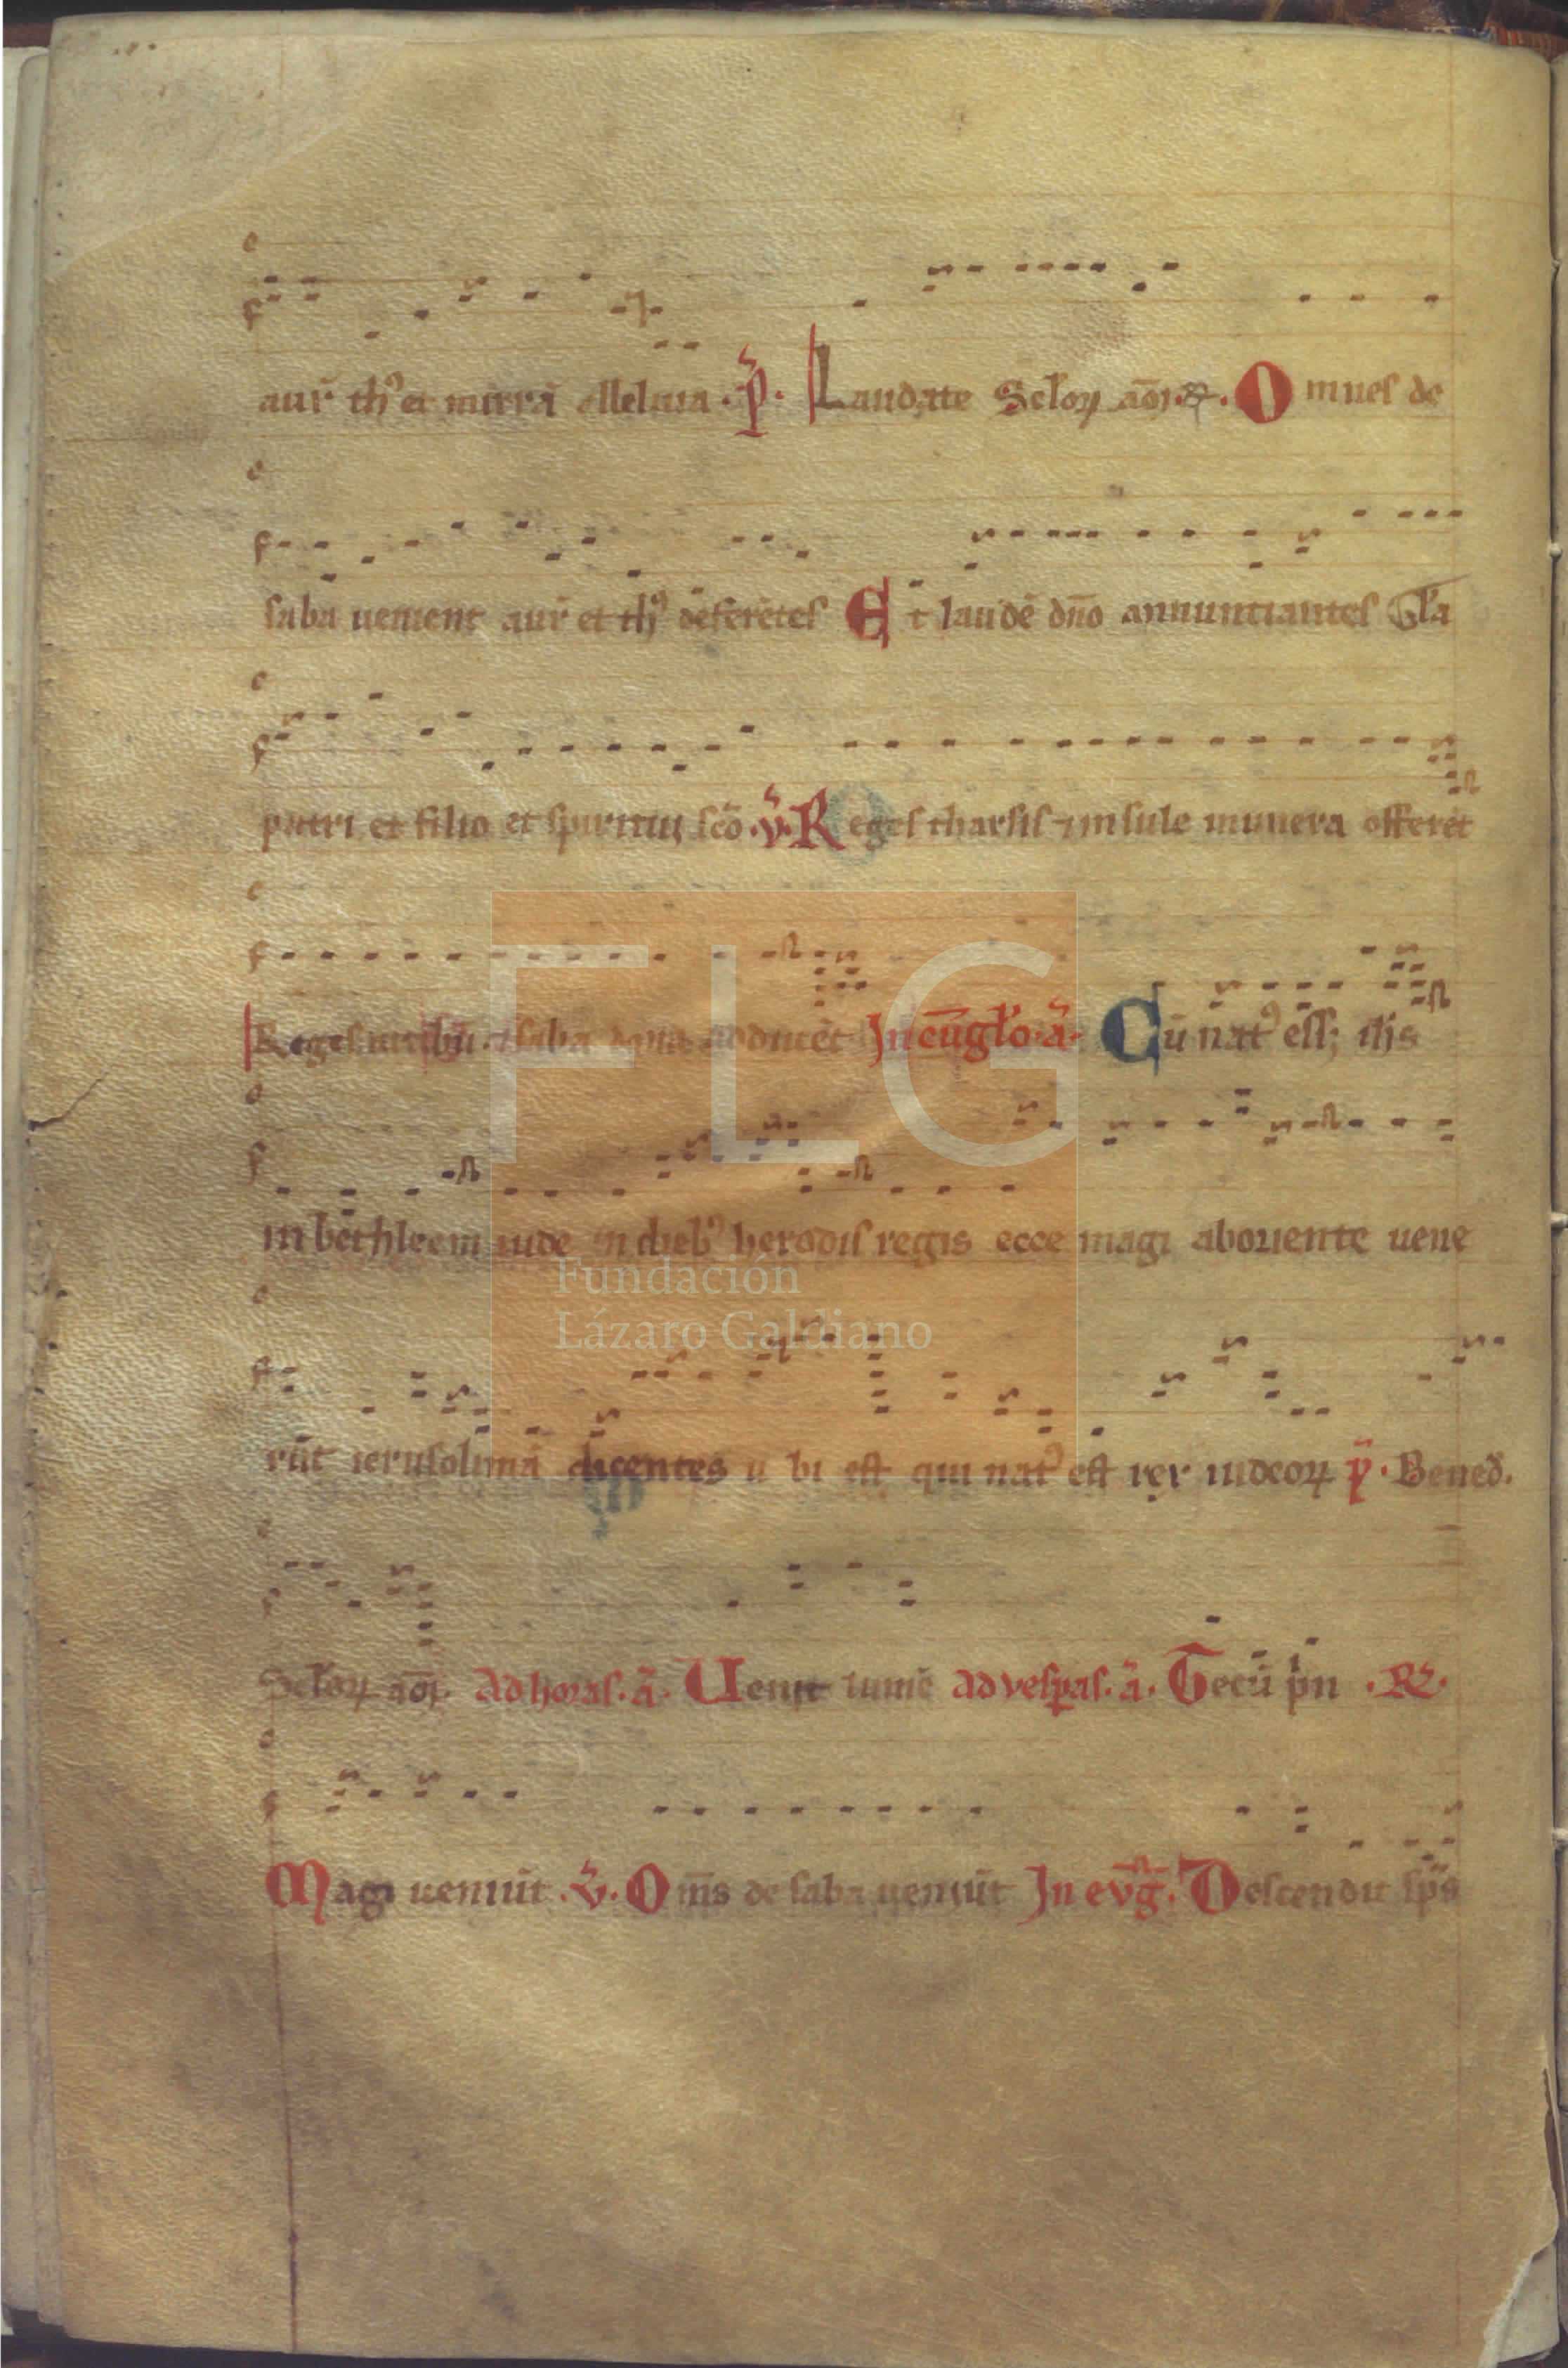 aur̄ th᷒ et mirrā alleluia · p̄ · Laudate Sclo㝝 am̄ · R̄ · Omnes de
saba uenient aur̄ et th᷒ deferētes Et laudē dn̄o annuntiantes Gl̄a
patri et filio et spiritui scō · v̄ · Reges tharsis ⁊ insule munera offerēt
Reges arabū et saba dona adducēt In eūgl̄o · ā · Cū nat᷒ ess; ih̄s
in bethleem iude in dieb᷒ herodis regis ecce magi ab oriente uene
rūt ierusolimā dicentes u bi est qui nat᷒ est rex iudeo㝝 p̄ · Bened̄.
Sclo㝝 am̄ · Ad horas · ā · Uenit lumē Ad vesp̄as · ā · Tecū p̄n · R̄ ·
Magi ueniūt · v̄ · Om̄s de saba ueniūt In ev̄ḡ · Descendit sp̄s
FLG
Fundación
Lázaro Galdiano